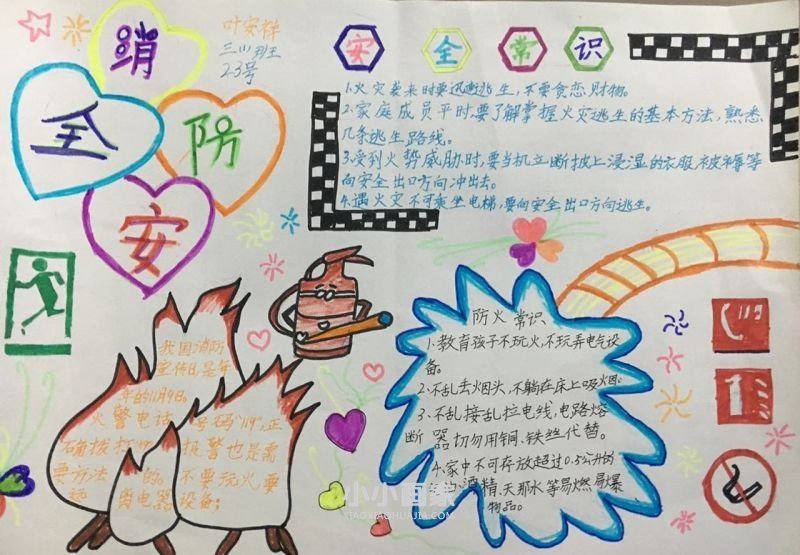 消
全
防
安
叶安梓
三(1)班
23号
安全常识
1.火灾袭来时要迅速逃生,不要贪恋财物。
2.家庭成员平时要了解掌握火灾逃生的基本方法,熟悉
几条逃生路线。
3.受到火势威胁时,要当机立断披上浸湿的衣服、被褥等
向安全出口方向冲出去。
4.遇火灾不可乘坐电梯,要向安全出口方向逃生。
我国消防
宣传日是每
年的11月9日。
火警电话号码"119",正
确拨打 报警也是需
要方法的。不要玩火要
远离电器设备;
防火常识
1.教育孩子不玩火,不玩弄电气设
备。
2.不乱丢烟头,不躺在床上吸烟。
3、不乱接乱拉电线,电路熔
断器切勿用铜、铁丝代替。
4.家中不可存放超过0.5公升的
酒精、天那水等易燃易爆
物品。
小小画家
XIAOXIAOHUAJIA.COM